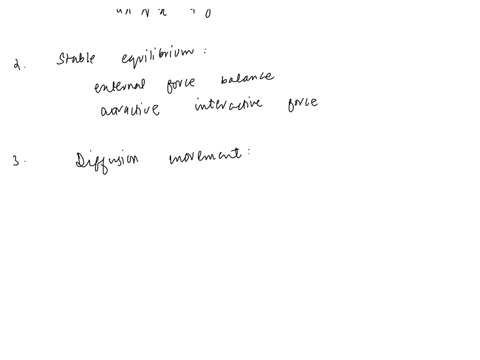 2. Stable equilibrium:
external force balance
attractive interactive force
3. Diffusion movement: